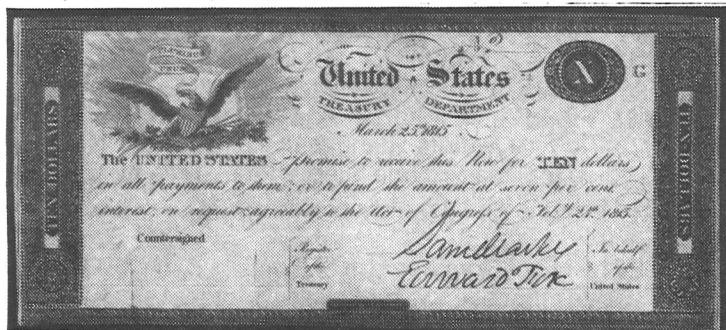 TEN DOLLARS
United States X G
TREASURY DEPARTMENT
March 25th 1815
The UNITED STATES promise to receive this Note for TEN dollars
in all payments to them; or to fund the amount at seven per cent
interest, on request; agreeably to the Act of Congress of Feby 24th 1815.
Countersigned
Register
of the
Treasury
Saml Clarke
Edward Fox
In behalf
of the
United States
TEN DOLLARS